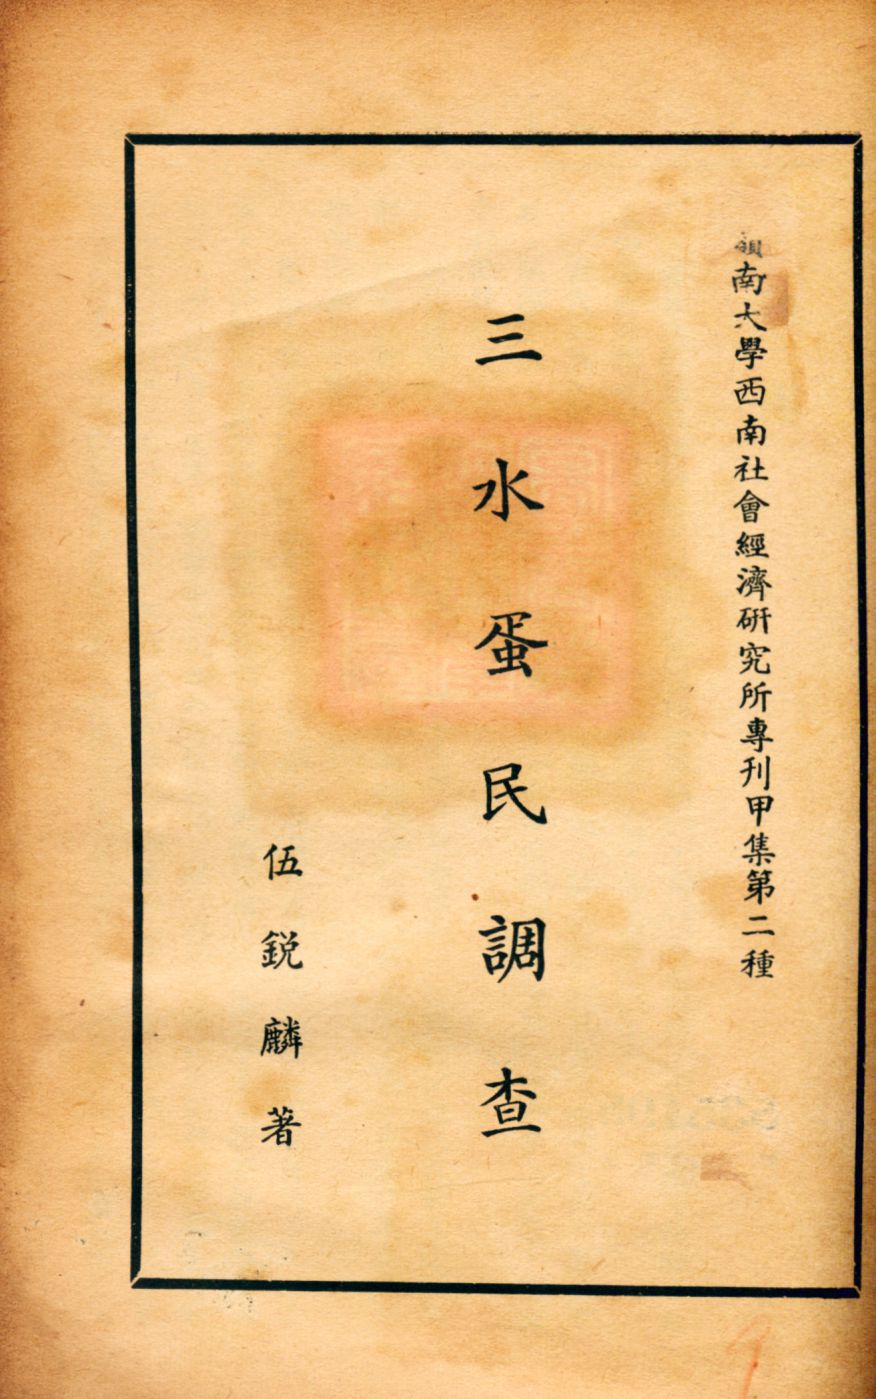 嶺南大學西南社會經濟研究所專刊甲集第二種
三水蛋民調查
伍銳麟著